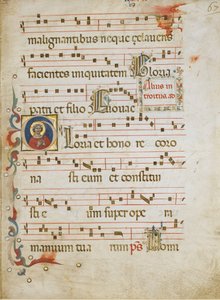 malignantibus neque zelaveris
facientes iniquitatem Gloria
patri et filio Euouae
Alius in
troitus
Gloria et honore coro
na sti eum et constitui
sti e um super ope ra
manuum tua rum ps Domi